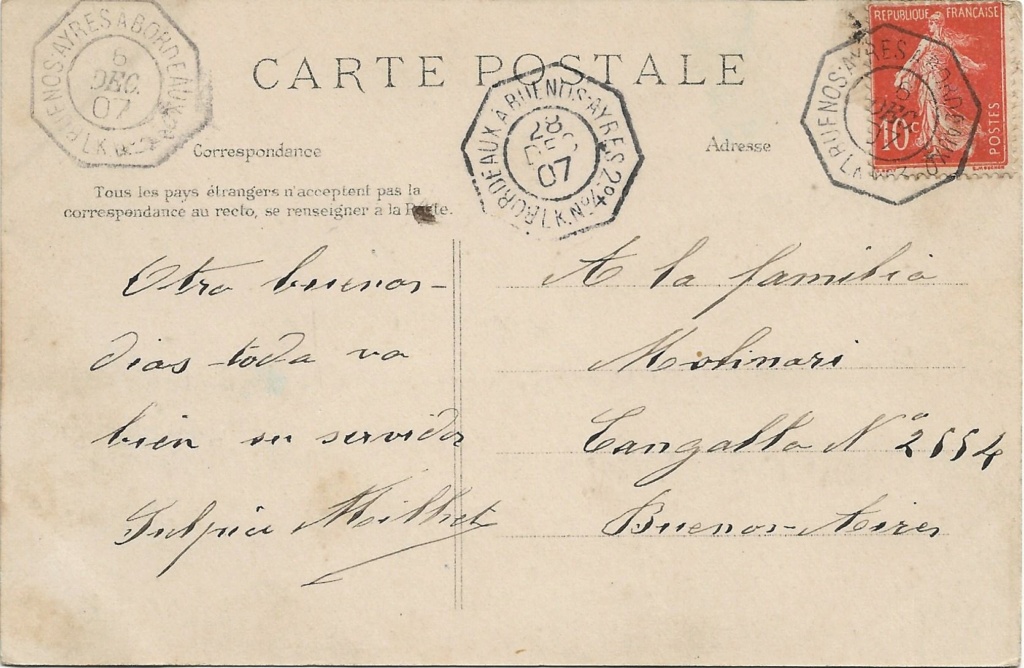 BUENOS-AYRES A BORDEAUX
6
DEC.
07
L.K. Nº
CARTE POSTALE
BORDEAUX À BUENOS-AYRES 2º
28
DEC
07
L.K. Nº 4
REPUBLIQUE FRANÇAISE
10 c
POSTES
BUENOS-AYRES BORDEAUX
6
DEC
L.K.
Correspondance
Adresse
Tous les pays étrangers n'acceptent pas la
correspondance au recto, se renseigner à la Poste.
Otro buenos-
dias toda va
bien su servidor
Sulpice Milhet
A la familia
Molinari
Cangallo Nº 2554
Buenos-Aires